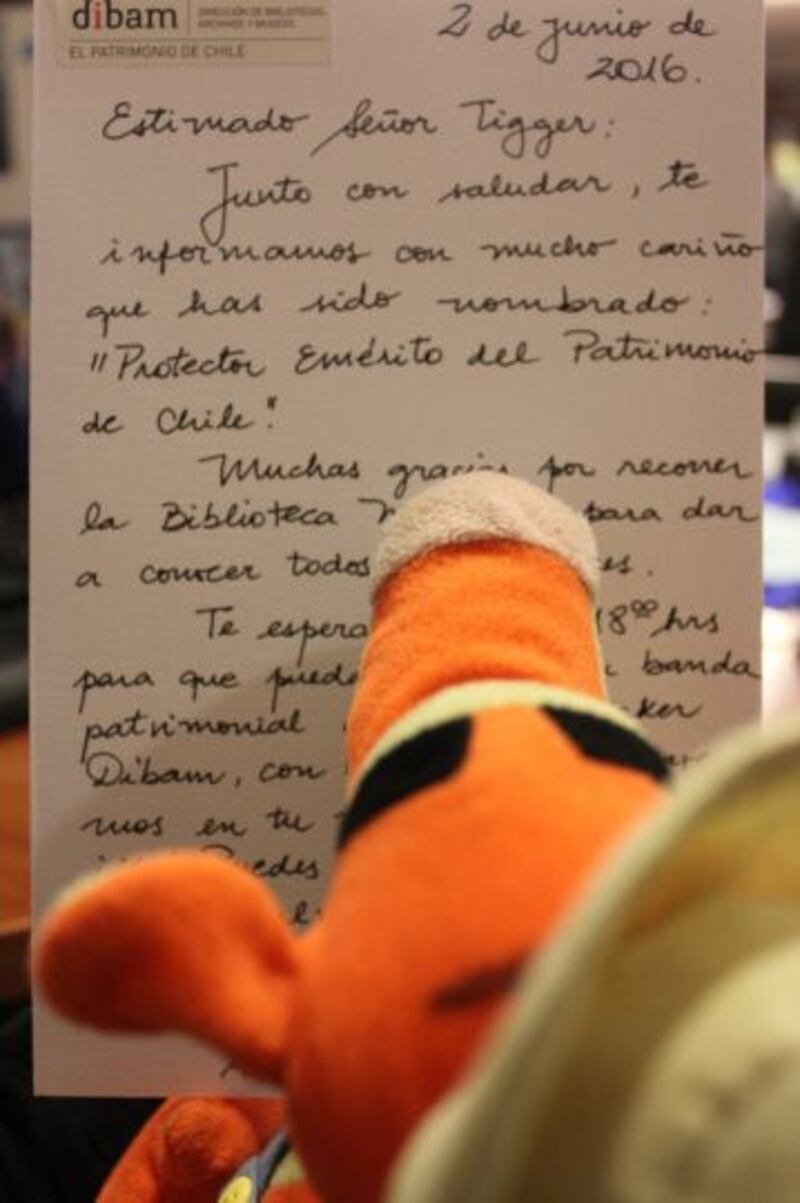 dibam
DIRECCIÓN DE BIBLIOTECAS,
ARCHIVOS Y MUSEOS
EL PATRIMONIO DE CHILE
2 de junio de
2016.
Estimado Señor Tigger:
Junto con saludar, te
informamos con mucho cariño
que has sido nombrado:
"Protector Emérito del Patrimonio
de Chile".
Muchas gracias por recorrer
la Biblioteca para dar
a conocer todos
Te 18⁰⁰ hrs
para que banda
patrimonial
Dibam, con
mos en tu